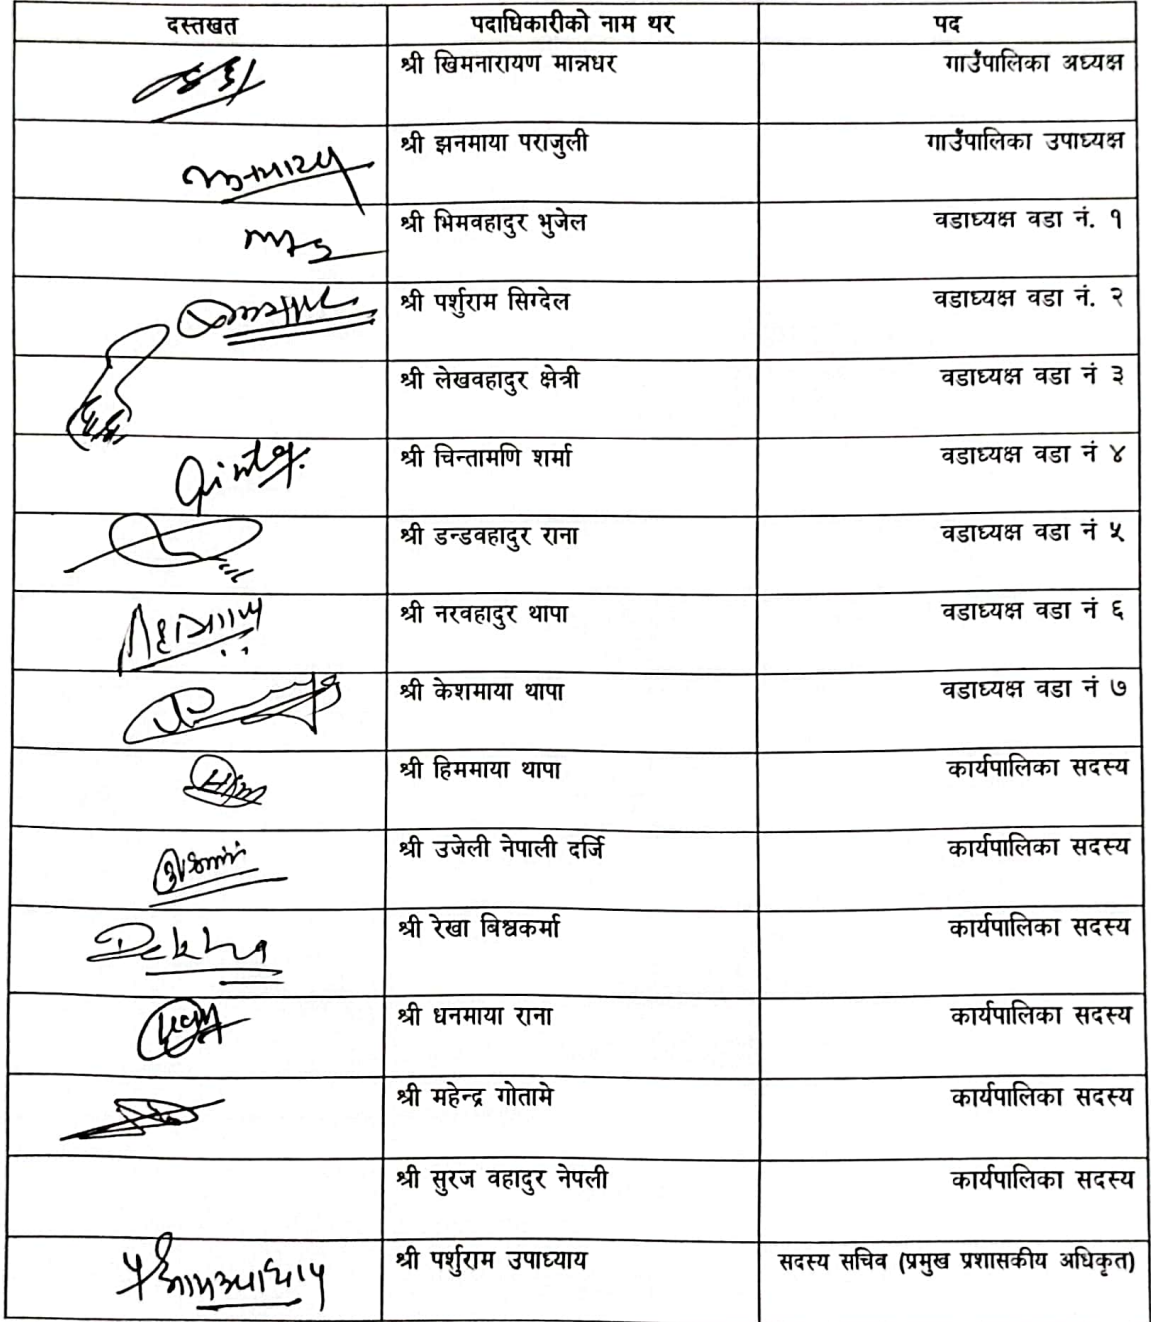 दस्तखत पदाधिकारीको नाम थर पद
श्री खिमनारायण मान्नधर गाउँपालिका अध्यक्ष
श्री झनमाया पराजुली गाउँपालिका उपाध्यक्ष
श्री भिमवहादुर भुजेल वडाध्यक्ष वडा नं. १
श्री पर्शुराम सिग्देल वडाध्यक्ष वडा नं. २
श्री लेखवहादुर क्षेत्री वडाध्यक्ष वडा नं ३
श्री चिन्तामणि शर्मा वडाध्यक्ष वडा नं ४
श्री डन्डवहादुर राना वडाध्यक्ष वडा नं ५
श्री नरवहादुर थापा वडाध्यक्ष वडा नं ६
श्री केशमाया थापा वडाध्यक्ष वडा नं ७
श्री हिममाया थापा कार्यपालिका सदस्य
श्री उजेली नेपाली दर्जि कार्यपालिका सदस्य
श्री रेखा बिश्वकर्मा कार्यपालिका सदस्य
श्री धनमाया राना कार्यपालिका सदस्य
श्री महेन्द्र गोतामे कार्यपालिका सदस्य
श्री सुरज वहादुर नेपली कार्यपालिका सदस्य
श्री पर्शुराम उपाध्याय सदस्य सचिव (प्रमुख प्रशासकीय अधिकृत)